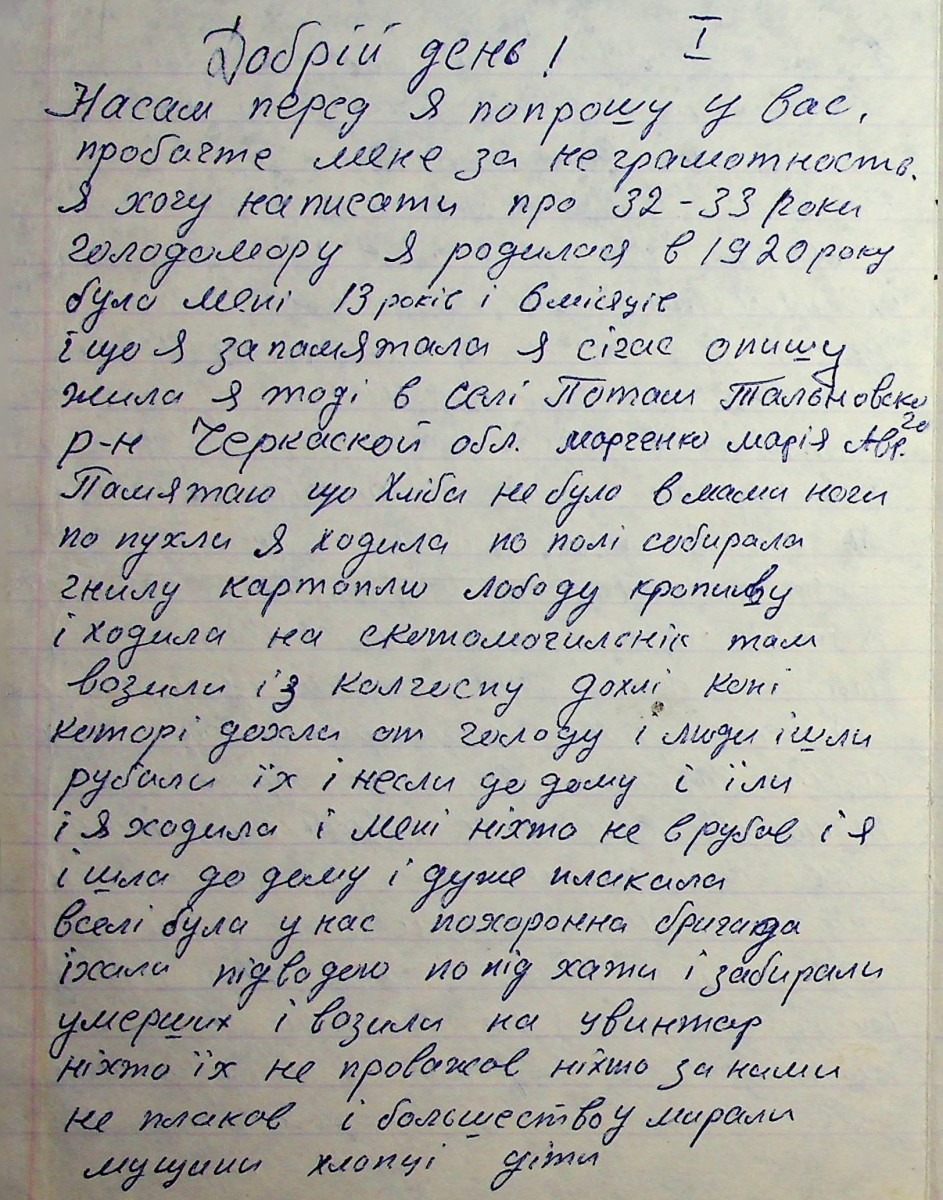 Добрій день! I
Насам перед я попрошу у вас,
пробачте мене за не грамотность.
я хочу написати про 32-33 роки
голодомору я родилася в 1920 року
було мені 13 років і 6 місяців
і що я запамятала я січас опишу
жила я тоді в селі Поташ Тальновского
р-н Черкаской обл. марченко марія Авр.
Памятаю що хліба не було в мами ноги
по пухли я ходила по полі собирала
гнилу картоплю лободу кропиву
і ходила на скотомогильнік там
возили із колгоспу дохлі коні
которі дохли от голоду і люди ішли
рубали їх і несли до дому і їли
і я ходила і мені ніхто не врубав і я
ішла до дому і дуже плакала
вселі була у нас похоронна бригада
їхала підводою по під хати і забирали
умерших і возили на цвинтар
ніхто їх не проважав ніхто за ними
не плакав і большество у мирали
мущини хлопці діти